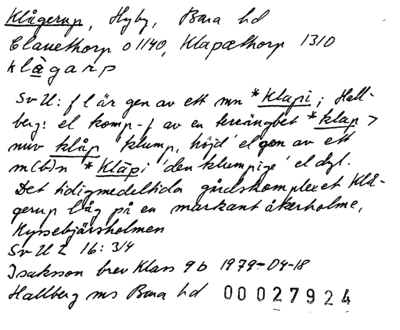 Klågerup, Hyby, Bara hd
Clauethorp o 1140, Klapæthorp 1310
klågarp
SvU: f l är gen av ett mn *Klapi; Hall-
berg: el komp-f av en terrängbet *klap >
nuv klåp 'klump, höjd' el gen av ett
m(b)n *Klāpi 'den klumpige' el dyl.
Det tidigmedeltida gårdskomplexet Klå-
gerup låg på en markant åkerholme,
Kyssebjärsholmen
SvU 2 16:3/4
Isaksson brev Klass 9b 1979-04-18
Hallberg ms Bara hd 00027924